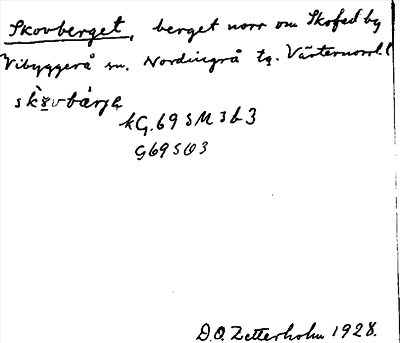 Skovberget, berget norr om Skofed by
Vibyggerå sn. Nordingrå tg. Västernorrl. l
kG.69SM3b3
G69SO3
D.O. Zetterholm 1928.